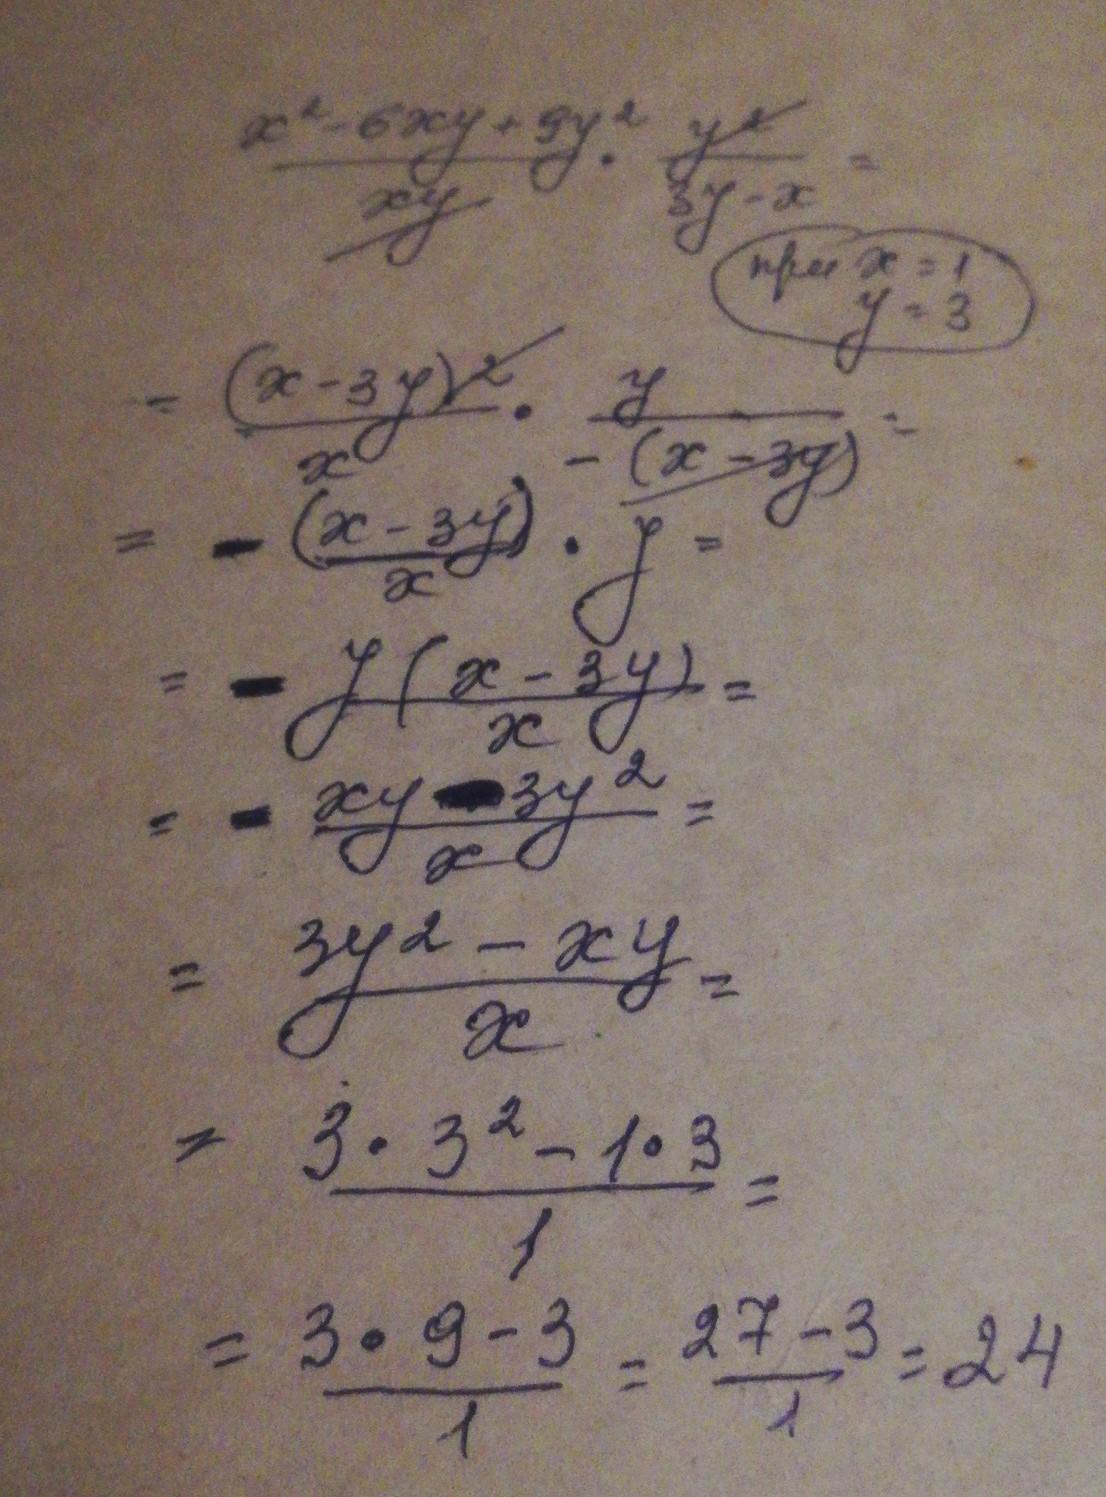 x² - 6xy + 9y² / xy · y² / 3y - x =
при x = 1
y = 3
= (x - 3y)² / x · y / -(x - 3y) =
= - (x - 3y) / x · y =
= - y(x - 3y) / x =
= - xy - 3y² / x =
= 3y² - xy / x =
= 3 · 3² - 1 · 3 / 1 =
= 3 · 9 - 3 / 1 = 27 - 3 / 1 = 24